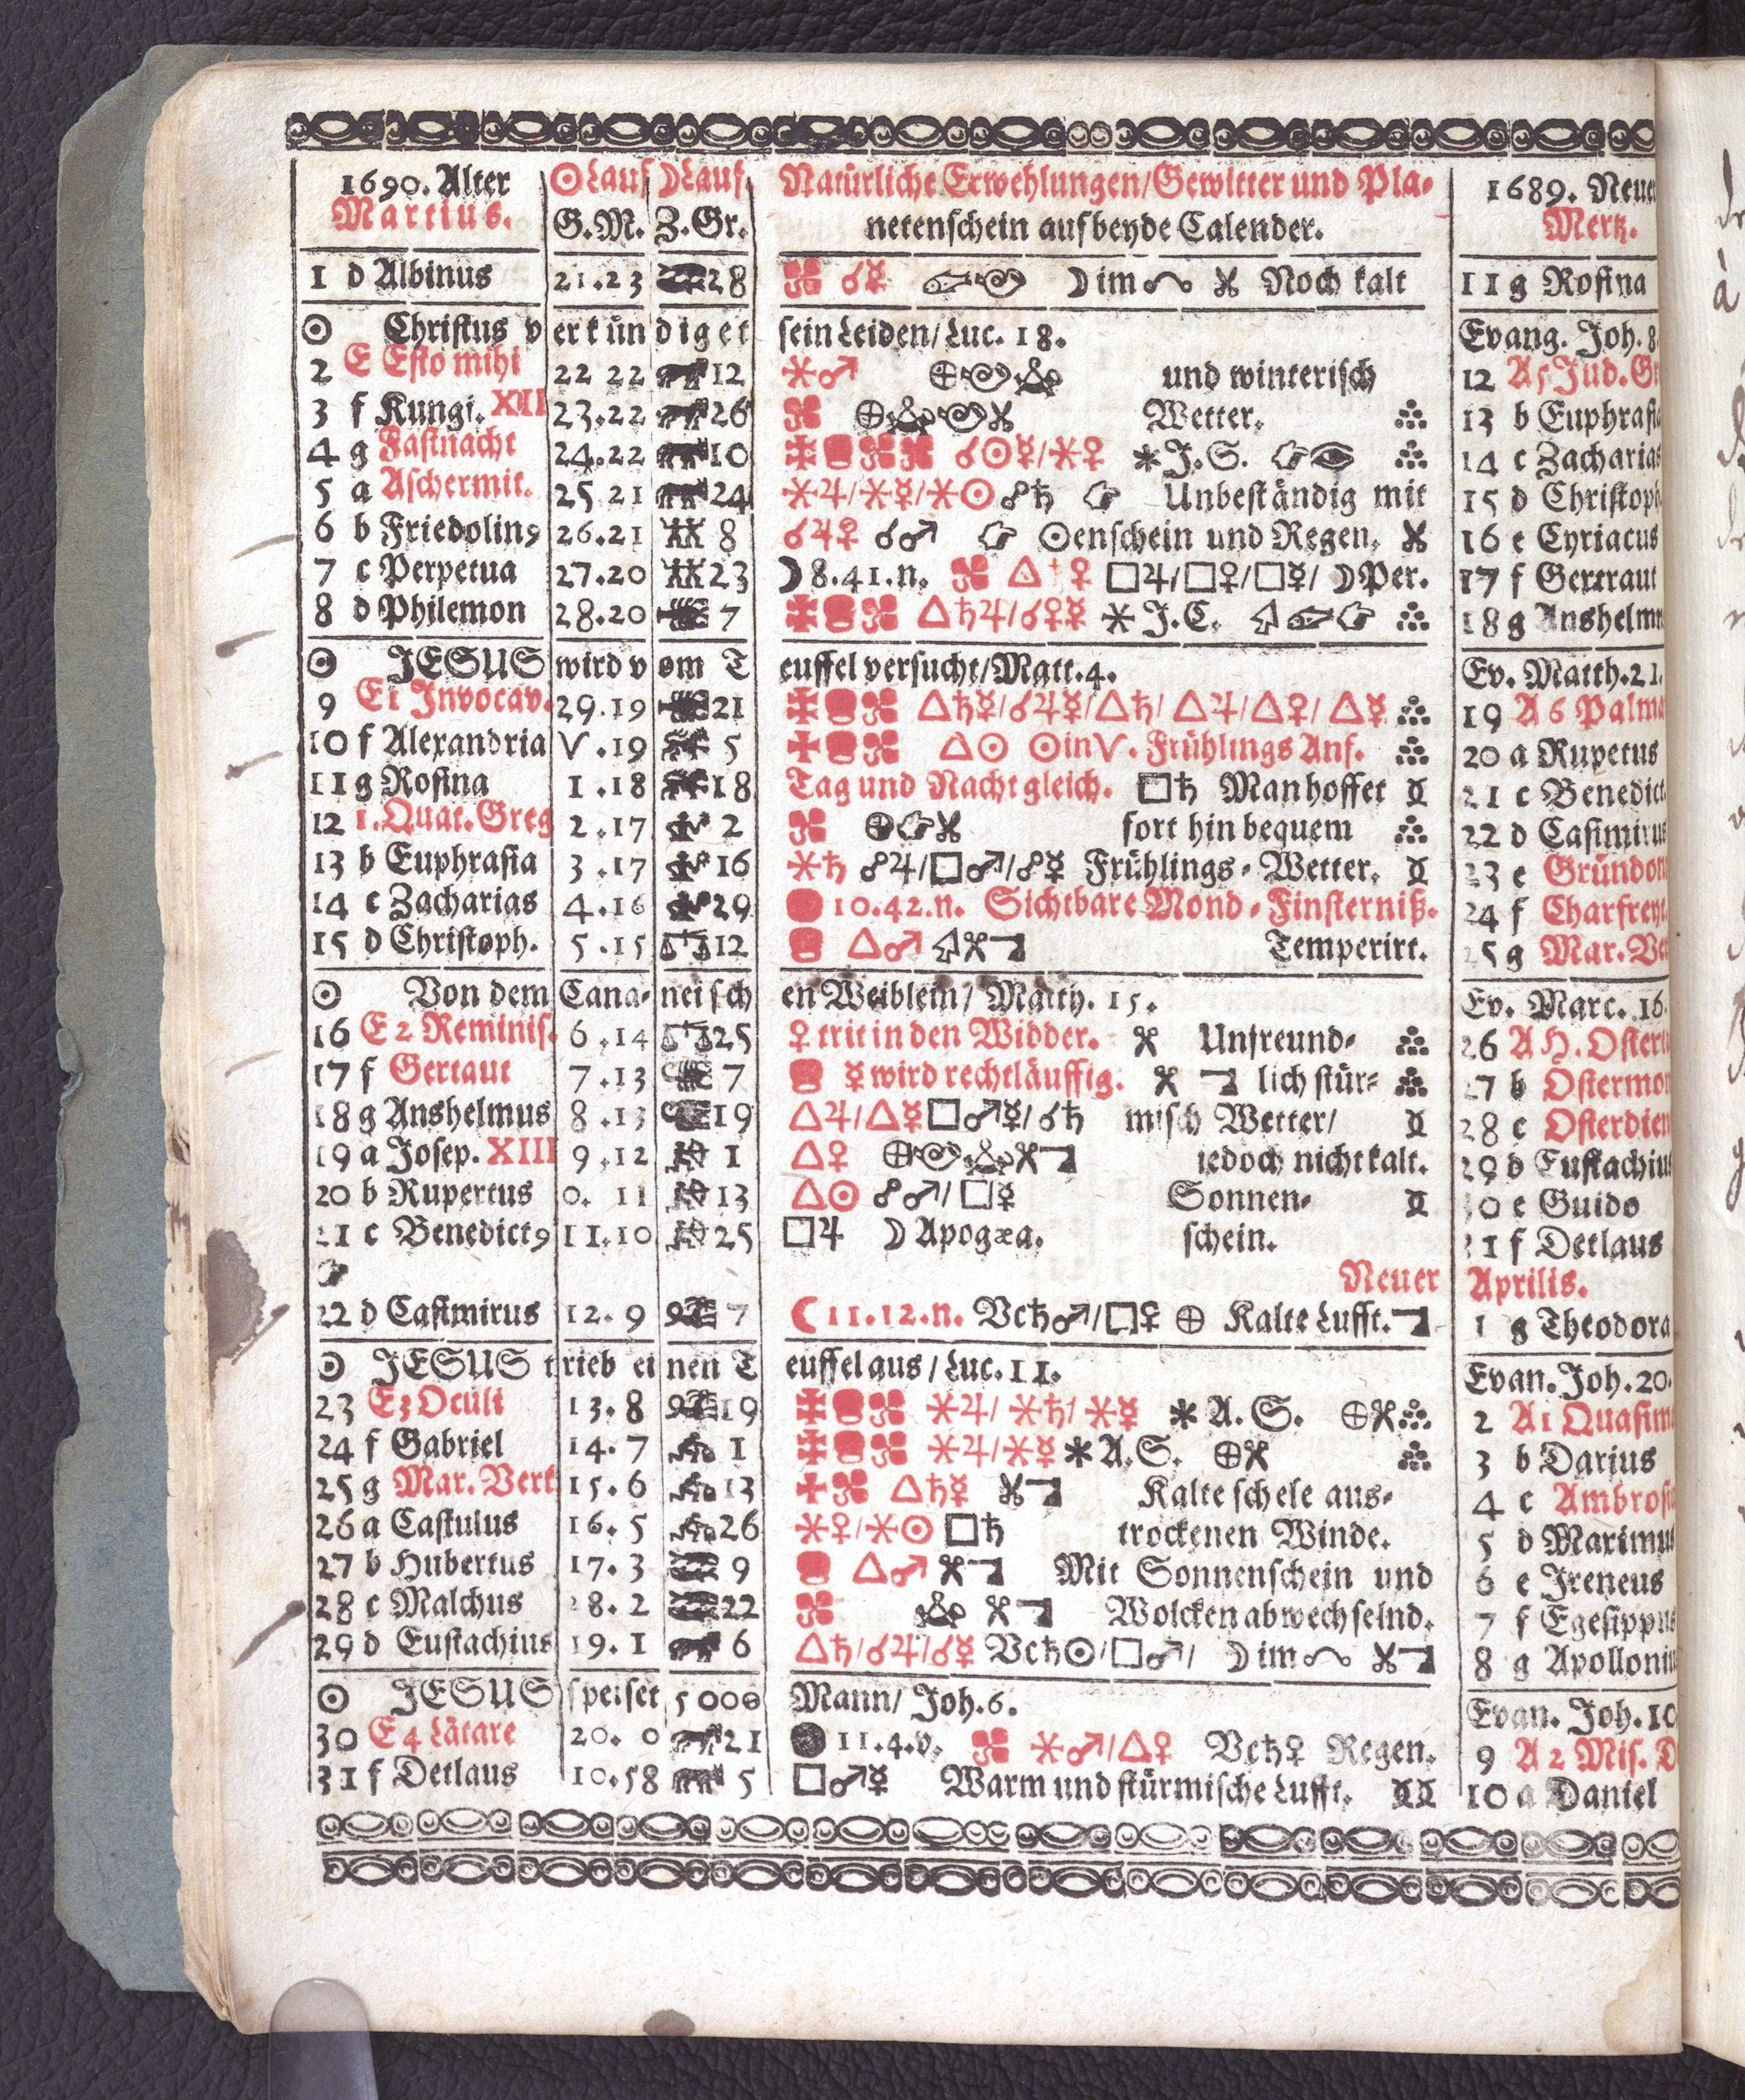 1690. Alter ☉Lauf ☽Lauf Natürliche Erwehlungen/Gewitter und Pla- 1689. Neue
Martius. G.M. Z.Gr. netenschein auf beyde Calender. Mertz.
1 d Albinus 21.23 28 ☌☿ ☽im Noch kalt 11 g Rosina
☉ Christus verkündiget sein Leiden/Luc. 18. Evang. Joh. 8.
2 E Esto mihi 22 22 12 ⚹♂ und winterisch 12 A 5 Jud. G
3 f Kungi. XII 23.22 26 Wetter. 13 b Euphrasia
4 g Fastnacht 24.22 10 ☌☉☿/⚹♀ ⚹J.S. 14 c Zacharias
5 a Aschermit. 25 21 24 ⚹♃/⚹☿/⚹☉☍♄ Unbeständig mit 15 d Christoph
6 b Friedolin9 26.21 8 ☌♃♀ ☌♂ ☉enschein und Regen. 16 e Cyriacus
7 c Perpetua 27.20 23 ☽8.41.n. △ ♀ □♃/□♀/□☿/ ☽Per. 17 f Gertraut
8 d Philemon 28.20 7 △♄♃/☌♀☿ ⚹J.C. 18 g Anshelm
☉ JESUS wird vom Teuffel versucht/Matt.4. Ev. Matth.21.
9 E1 Invocav. 29.19 21 △♄☿/☌♃☿/△♄/ △♃/△♀/ △☿ 19 A 6 Palm
10 f Alexandria V.19 5 △☉ ☉inV. Frühlings Anf. 20 a Rupetus
11 g Rosina 1.18 18 Tag und Nacht gleich. □♄ Man hoffet 21 c Benedict
12 1. Quat. Greg 2.17 2 fort hin bequem 22 d Casimirus
13 b Euphrasia 3.17 16 ⚹♄ ☍♃/□♂/☍☿ Frühlings-Wetter. 23 e Gründon
14 c Zacharias 4.16 29 10.42.n. Sichtbare Mond-Finsterniß. 24 f Charfreyt
15 d Christoph. 5.15 12 △♂ Temperirt. 25 g Mar. Ver
☉ Von dem Cananeischen Weiblein/ Matth. 15. Ev. Marc. 16.
16 E 2 Reminis. 6.14 25 ♀ trit in den Widder. Unfreund- 26 A H. Oster
17 f Gertaut 7.13 7 ☿ wird rechtläuffig. lich stür- 27 b Ostermon
18 g Anshelmus 8.13 19 △♃/△☿□♂☿/☌♄ misch Wetter/ 28 c Osterdien
19 a Josep. XIII 9.12 1 △♀ iedoch nicht kalt. 29 d Eustachius
20 b Rupertus 0. 11 13 △☉ ☍♂/□☿ Sonnen- 30 e Guido
21 c Benedict9 11.10 25 □♃ ☽Apogæa. schein. 31 f Detlaus
Neuer Aprilis.
22 d Casimirus 12. 9 7 ☾11.12.n. Vc♄♂/□♀ ⊕ Kalte Lufft. 1 g Theodora
☉ JESUS trieb einen Teuffel aus/Luc.11. Evan. Joh.20.
23 E3 Oculi 13. 8 19 ⚹♃/ ⚹♄/ ⚹☿ ⚹A.S. ⊕ 2 A1 Quasim
24 f Gabriel 14. 7 1 ⚹♃/⚹☿ ⚹A.S. ⊕ 3 b Darius
25 g Mar. Verk 15. 6 13 △♄☿ Kalte schele aus- 4 c Ambros
26 a Castulus 16. 5 26 ⚹♀/⚹☉ □♄ trockenen Winde. 5 d Maximus
27 b Hubertus 17. 3 9 △♂ Mit Sonnenschein und 6 e Ireneus
28 c Malchus 18. 2 22 Wolcken abwechselnd. 7 f Egesippus
29 d Eustachius 19. 1 6 △♄/☌♃/☌☿ Vc♄☉/□♂/ ☽im 8 g Apolloniu
☉ JESUS speiset 5000 Mann/ Joh.6. Evan. Joh.10
30 E4 Lätare 20. 0 21 11.4.v. ⚹♂/△♀ Vc♄♀ Regen. 9 A 2 Mis. D
31 f Detlaus 10.58 5 □♂☿ Warm und stürmische Lufft. 10 a Daniel